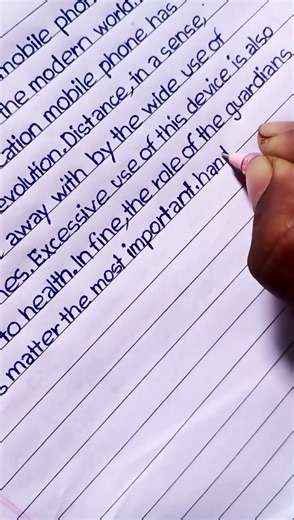 mobile phon
the modern world.
cation mobile phone has
evolution. Distance, in a sense,
away with by the wide use of
nes. Excessive use of this device is also
to health. In fine, the role of the guardians
s matter the most important. hand